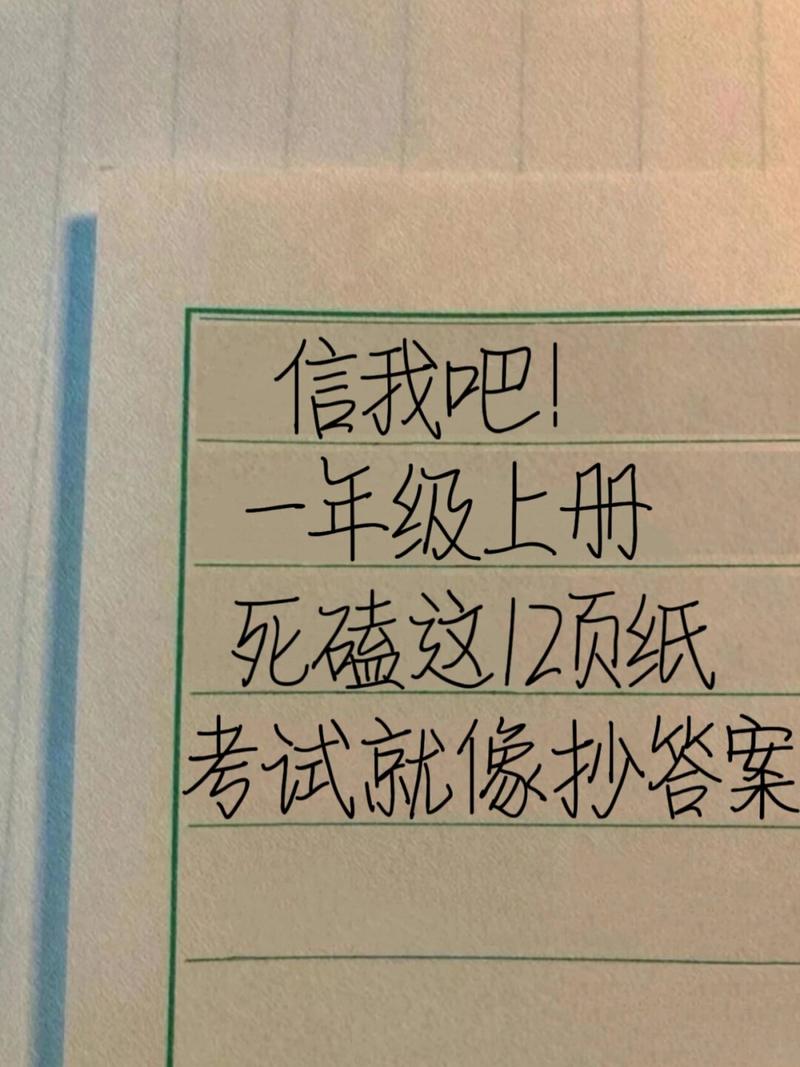 信我吧!
一年级上册
死磕这12页纸
考试就像抄答案